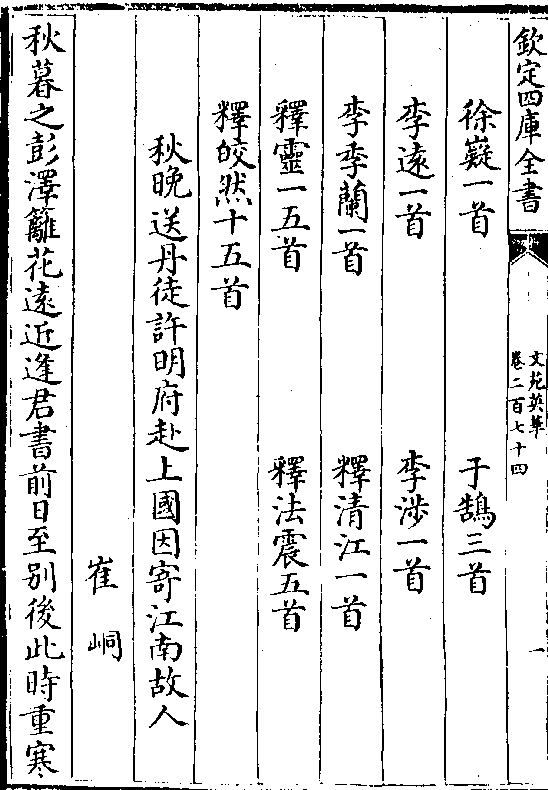 欽定四庫全書
文苑英華
卷二百七十四
一
徐嶷一首
于鵠三首
李遠一首
李涉一首
李季蘭一首
釋清江一首
釋靈一五首
釋法震五首
釋皎然十五首
秋晚送丹徒許明府赴上國因寄江南故人
崔峒
秋暮之彭澤籬花遠近逢君書前日至别後此時重寒